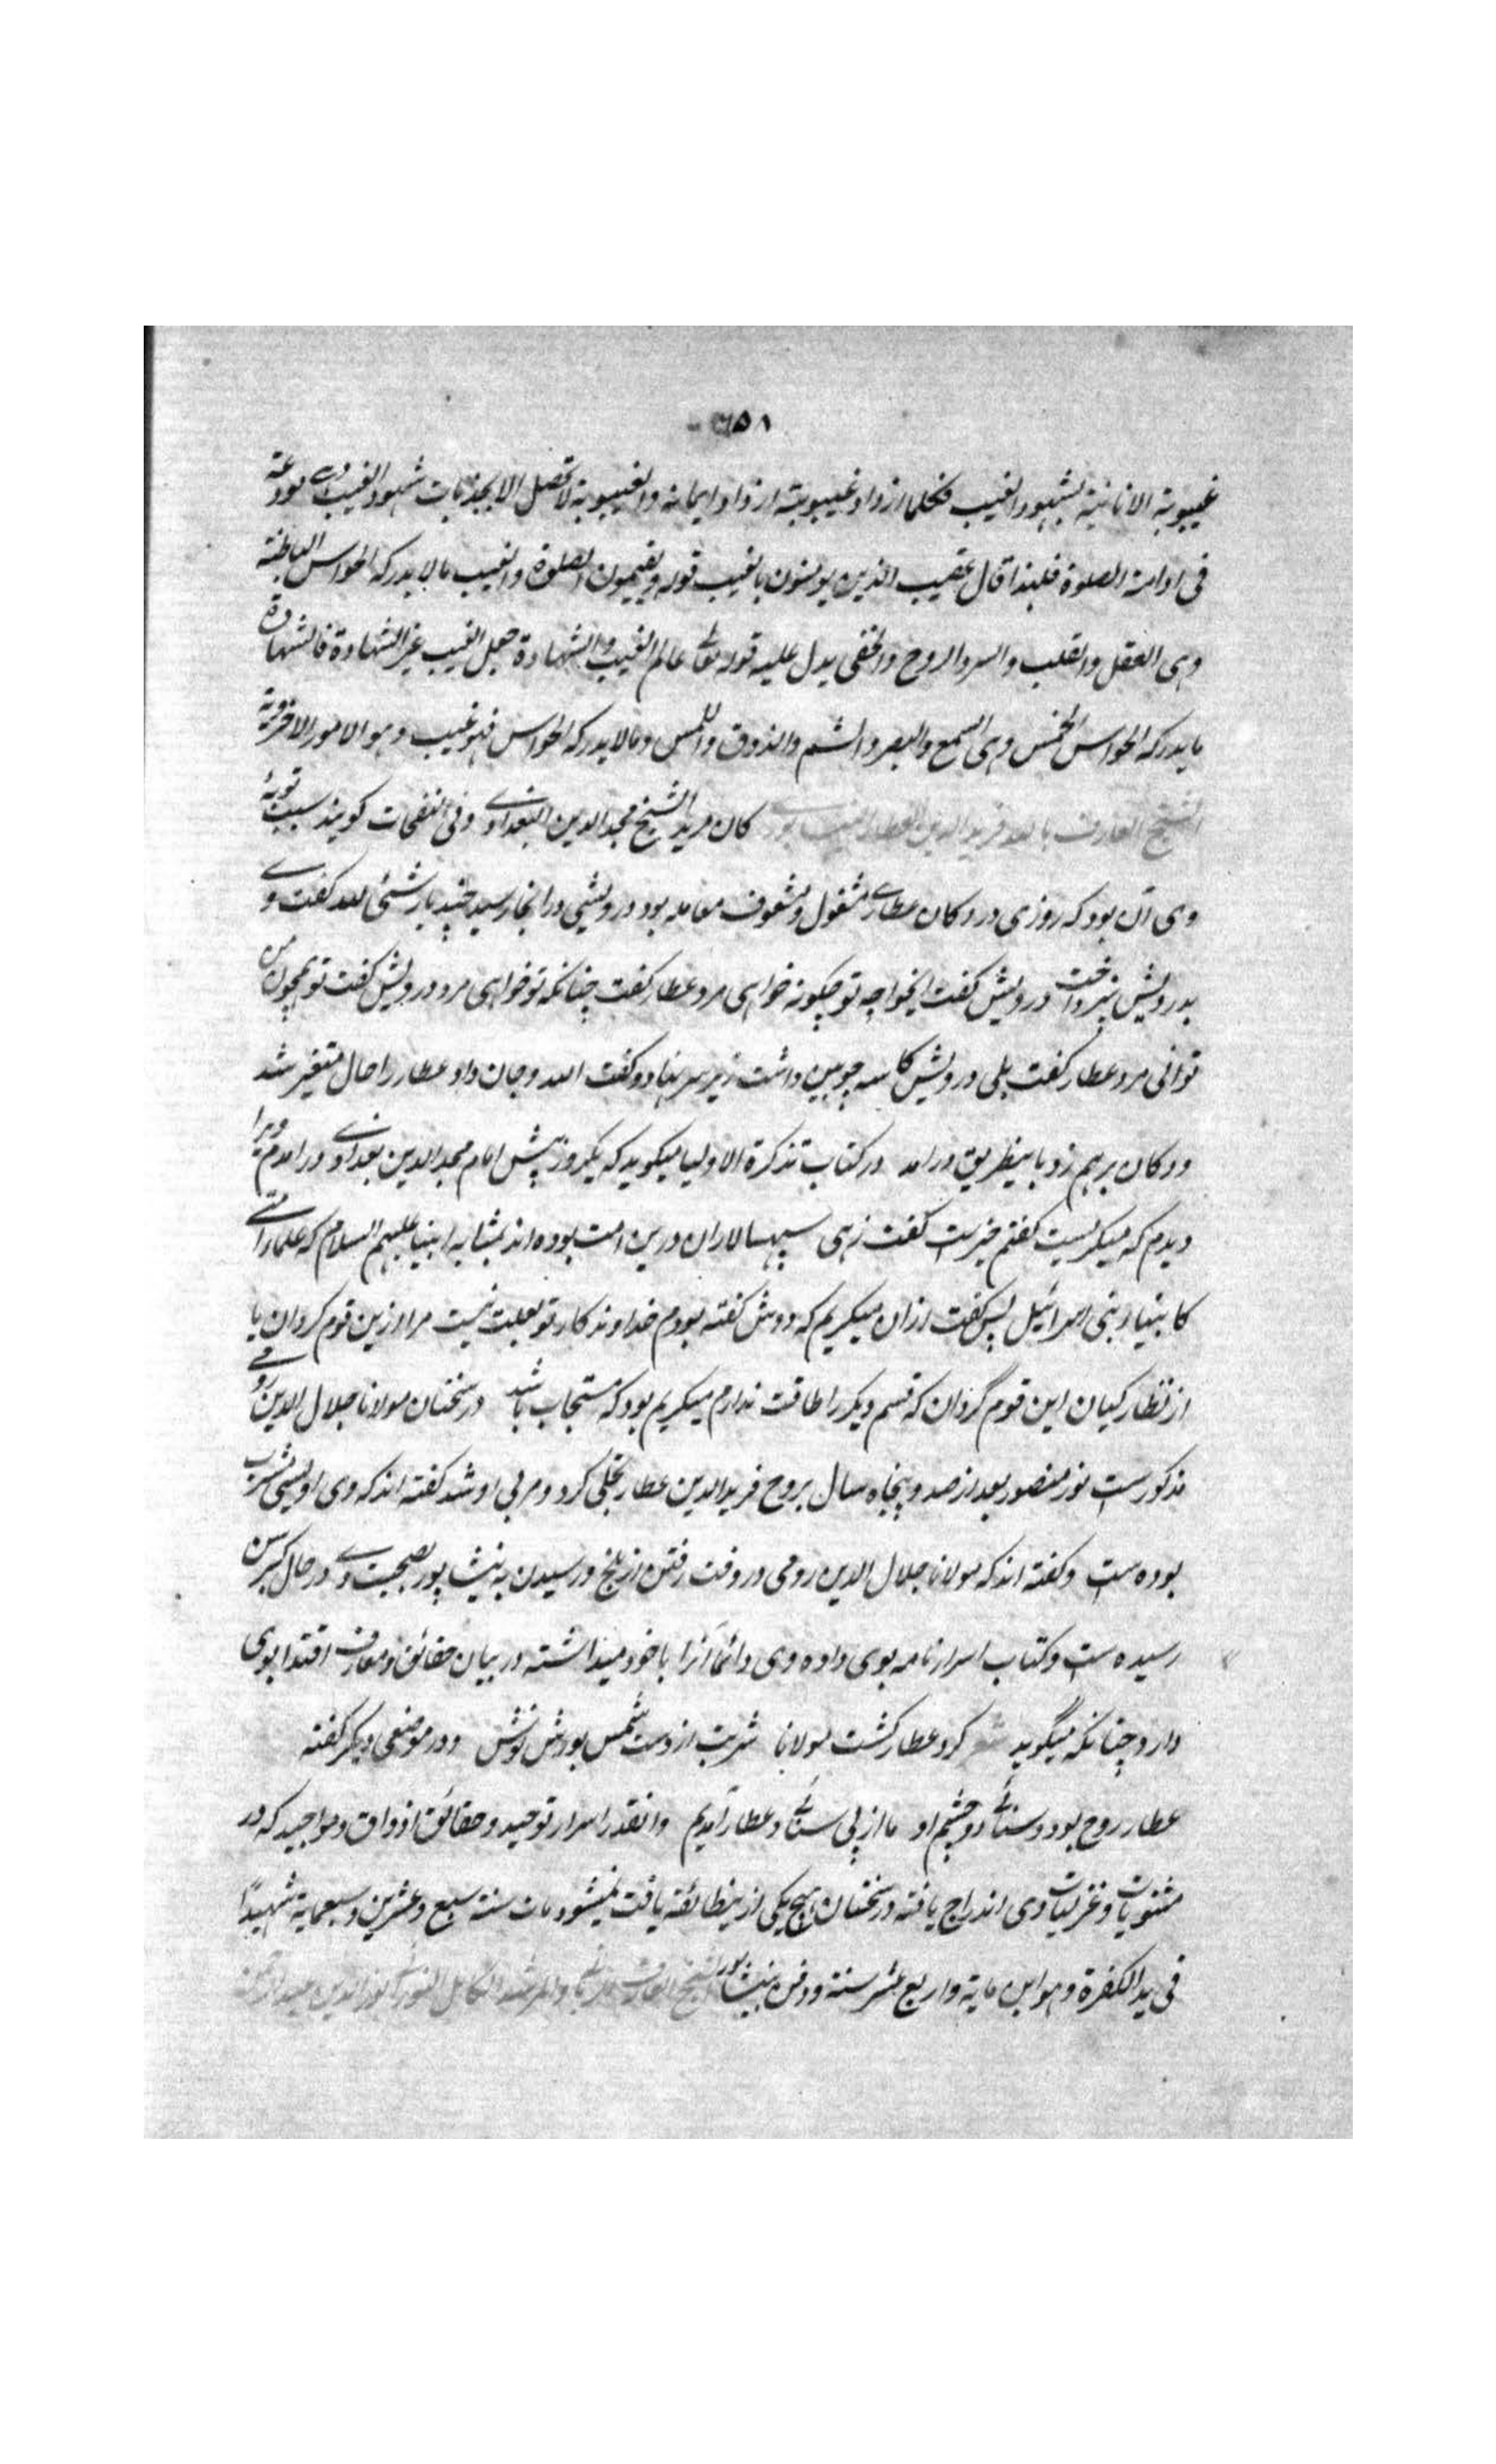 ٦٥١
غيبوبة الانانية بشهود الغيب فكلما ازداد غيبوبته ازداد ايمانه والغيبوبة لا تحصل الا بجذبات شهود الغيب مودعة
فى ادامة الصلوة فلهذا قال عقيب الذين يومنون بالغيب قوله ويقيمون الصلوة والغيب ما لا يدركه الحواس الباطنة
وهى العقل والقلب والسر والروح والخفى يدل عليه قوله تعالى عالم الغيب والشهادة جعل الغيب غير الشهادة فالشهادة
ما يدركه الحواس الخمس وهى السمع والبصر والشم والذوق واللمس وما لا يدركه الحواس فهو غيب وهو الامور الاخروية
الشيخ العارف بالله فريد الدين العطار النيسابورى كان مريد الشيخ مجد الدين البغدادى وفى النفحات كويند سبب توبهٔ
وى آن بود كه روزى در دكان عطارى مشغول ومشعوف معامله بود درويشى درانجا رسيد چند بار شئى لله كفت وى
بدرويش نپرداخت درويش كفت ايخواجه تو چكونه خواهى مرد عطار كفت چنانكه تو خواهى مرد درويش كفت تو همچون من
توانى مرد عطار كفت بلى درويش كاسه چوبين داشت زير سر نهاد و كفت الله وجان داد عطار را حال متغير شد
ودكان برهم زد باينطريق درامد در كتاب تذكرة الاوليا ميكويد كه يكروز پيش امام مجد الدين بغدادى درامدم ويرا
ديدم كه ميكريست كفتم خيرست كفت زهى سپهسالاران درين امت بوده اند بمثابه انبيا عليهم السلام كه علماء امتى
كانبياء بنى اسرائيل پس كفت ازان ميكريم كه دوش كفته بودم خداوندا كار تو بعلت نيست مرا ازين قوم كردان يا
از نظاركيان اين قوم گردان كه قسم ديكر را طاقت ندارم ميكريم بود كه مستجاب باشد در سخنان مولانا جلال الدين رومى
مذكورست نور منصور بعد از صد و پنجاه سال بروح فريد الدين عطار تجلى كرد ومربى او شد كفته اند كه وى اويسى مشرب
بوده ست وكفته اند كه مولانا جلال الدين رومى در وقت رفتن از بلخ ورسيدن به نيشاپور بصحبت وى در حال كبر سن
رسيده ست وكتاب اسرارنامه بوى داده وى دائما آنرا با خود ميداشته در بيان حقائق ومعارف اقتدا بوى
دارد چنانكه ميگويد شعر كرد عطار كشت مولانا شربت از دست شمس بودش نوش ودر موضعى ديكر كفته
عطار روح بود وسنائى دو چشم او ما از پى سنائى وعطار آمديم وانقدر اسرار توحيد وحقائق اذواق ومواجيد كه در
مثنويات وغزليات وى اندراج يافته در سخنان هيچ يكى ازينطائفه يافت نميشود مات سنة سبع وعشرين وسبعماية شهيدًا
فى يد الكفرة وهو ابن ماية واربع عشر سنة ودفن بنيشاپور الشيخ العارف